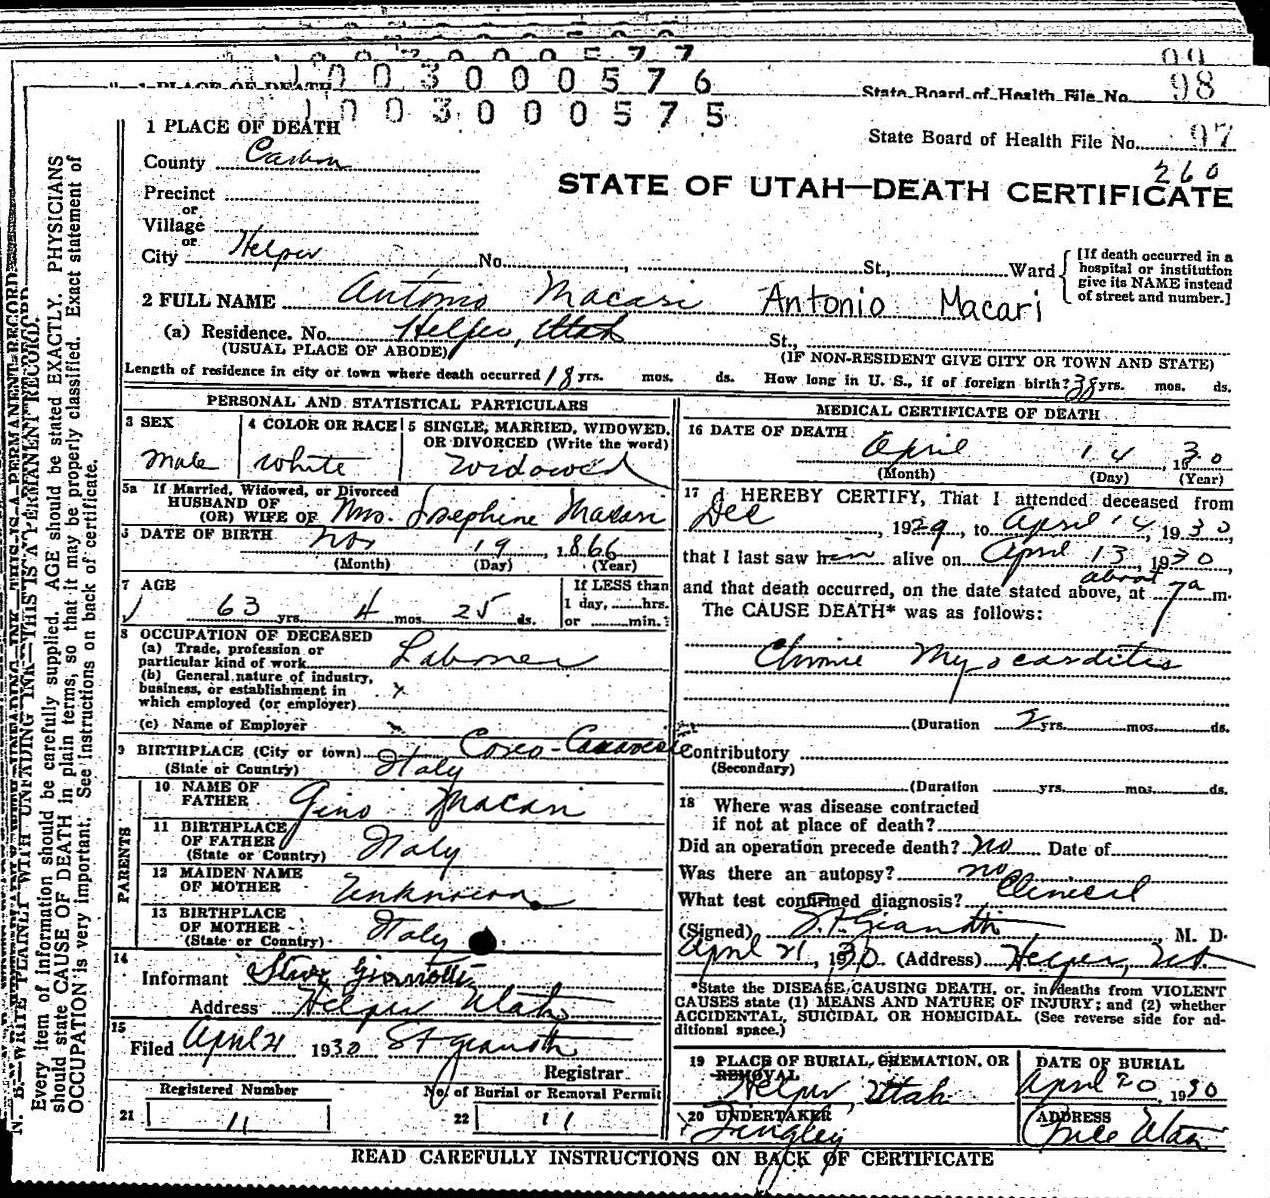 7 7
99
1 0 0 3 0 0 0 5 7 6
1 PLACE OF DEATH
State Board of Health File No. 98
1 0 0 3 0 0 0 5 7 5
1 PLACE OF DEATH
State Board of Health File No. 97
County Carbon
260
STATE OF UTAH—DEATH CERTIFICATE
Precinct
or
Village
or
City Helper No. , St., Ward
[If death occurred in a
hospital or institution
give its NAME instead
of street and number.]
2 FULL NAME Antonio Macari Antonio Macari
(a) Residence. No. Helper, Utah St.,
(USUAL PLACE OF ABODE) (IF NON-RESIDENT GIVE CITY OR TOWN AND STATE)
Length of residence in city or town where death occurred 18 yrs. mos. ds. How long in U. S., if of foreign birth? 38 yrs. mos. ds.
PERSONAL AND STATISTICAL PARTICULARS
3 SEX
Male
4 COLOR OR RACE
White
5 SINGLE, MARRIED, WIDOWED,
OR DIVORCED (Write the word)
Widowed
5a If Married, Widowed, or Divorced
HUSBAND OF
(OR) WIFE OF Mrs. Josephine Macari
6 DATE OF BIRTH Nov 19, 1866
(Month) (Day) (Year)
7 AGE
63 yrs. 4 mos. 25 ds.
If LESS than
1 day, hrs.
or min.
8 OCCUPATION OF DECEASED
(a) Trade, profession or
particular kind of work Laborer
(b) General nature of industry,
business, or establishment in
which employed (or employer) x
(c) Name of Employer
9 BIRTHPLACE (City or town)
(State or Country) Italy
PARENTS
10 NAME OF
FATHER Gino Macari
11 BIRTHPLACE
OF FATHER
(State or Country) Italy
12 MAIDEN NAME
OF MOTHER Unknown
13 BIRTHPLACE
OF MOTHER
(State or Country) Italy
14
Informant Steve
Address Helper Utah
15
Filed April 21 1930
Registrar
Registered Number No. of Burial or Removal Permit
21 11 22 11
MEDICAL CERTIFICATE OF DEATH
16 DATE OF DEATH
April 14, 1930
(Month) (Day) (Year)
17 I HEREBY CERTIFY, That I attended deceased from
Dec, 1929, to April 14, 1930,
that I last saw him alive on April 13, 1930,
and that death occurred, on the date stated above, at about 7a m.
The CAUSE DEATH* was as follows:
Chronic Myocarditis
(Duration 2 yrs. mos. ds.
Contributory
(Secondary)
(Duration yrs. mos. ds.
18 Where was disease contracted
if not at place of death?
Did an operation precede death? No Date of
Was there an autopsy? no
What test confirmed diagnosis? Clinical
(Signed) M. D.
April 21, 1930. (Address) Helper, Ut.
*State the DISEASE CAUSING DEATH, or, in deaths from VIOLENT
CAUSES state (1) MEANS AND NATURE OF INJURY; and (2) whether
ACCIDENTAL, SUICIDAL OR HOMICIDAL. (See reverse side for ad-
ditional space.)
19 PLACE OF BURIAL, CREMATION, OR
REMOVAL
Helper, Utah
DATE OF BURIAL
April 20, 1930
20 UNDERTAKER
ADDRESS
Price Utah
READ CAREFULLY INSTRUCTIONS ON BACK OF CERTIFICATE
N. B.—WRITE PLAINLY WITH UNFADING INK—THIS IS A PERMANENT RECORD.
Every item of information should be carefully supplied. AGE should be stated EXACTLY. PHYSICIANS
should state CAUSE OF DEATH in plain terms, so that it may be properly classified. Exact statement of
OCCUPATION is very important. See instructions on back of certificate.